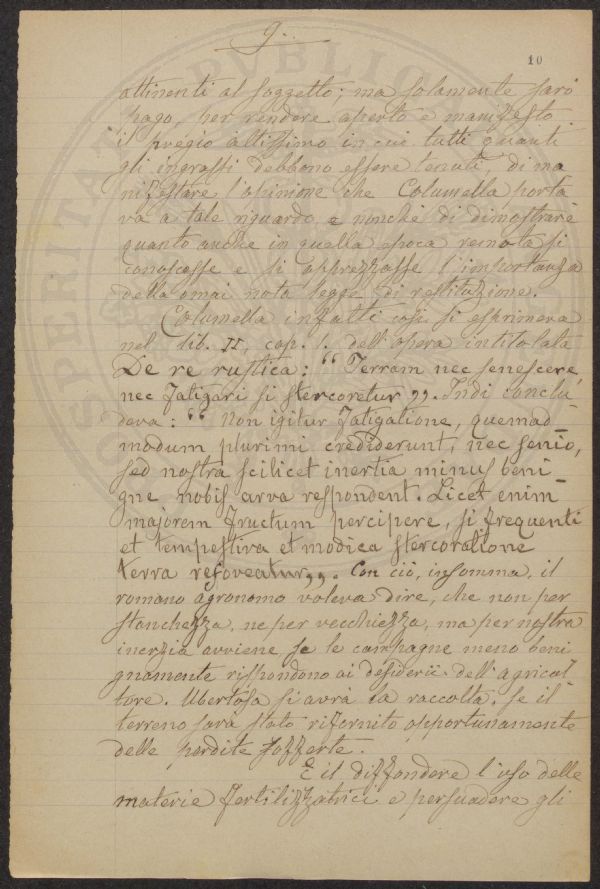 9.
10
attinenti al soggetto; ma solamente sarò
pago, per rendere aperto e manifesto
il pregio altissimo in cui tutti quanti
gli ingrassi debbono essere tenuti, di ma
nifestare l'opinione che Columella porta
va a tale riguardo e nonchè di dimostrare
quanto anche in quella epoca remota si
conoscesse e si apprezzasse l'importanza
della omai nota legge di restituzione.
Columella infatti così si esprimeva
nel lib. II, cap. . dell'opera intitolata
De re rustica: "Terram nec senescere
nec fatigari si stercoretur". Indi conclu
deva: "Non igitur fatigatione, quemad
modum plurimi crediderunt, nec senio,
sed nostra scilicet inertia minus beni
gne nobis arva respondent. Licet enim
majorem fructum percipere, si frequenti
et tempestiva et modica stercoratione
terra refoveatur". Con ciò, insomma, il
romano agronomo voleva dire, che non per
stanchezza, ne per vecchiezza, ma per nostra
inerzia avviene se le campagne meno beni
gnamente rispondono ai desiderii dell'agricol
tore. Ubertosa si avrà la raccolta, se il
terreno sarà stato rifornito opportunamente
delle perdite sofferte.
E il diffondere l'uso delle
materie fertilizzatrici e persuadere gli
SPERITAT PVBLICA